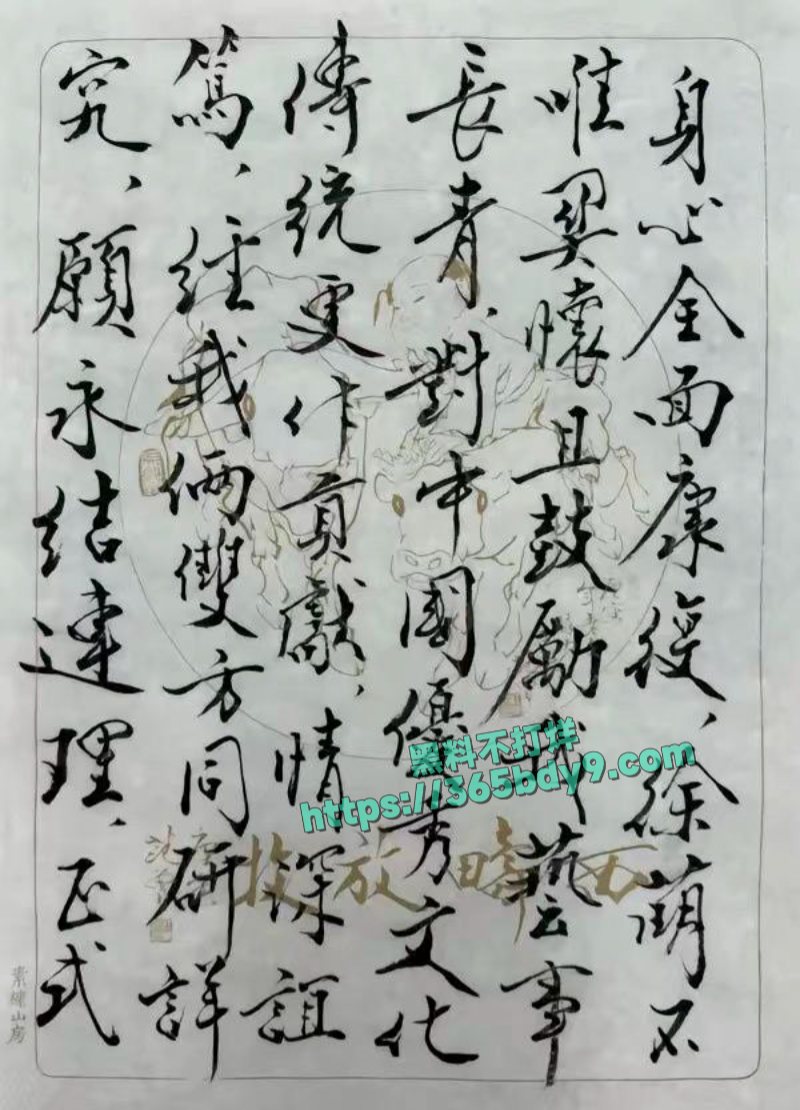 身心全面康復、徐萌不
唯契懷且鼓勵我藝事
長青、對中國優秀文化
傳統更作貢獻、情深誼
篤、經我倆雙方同研詳
究、願永結連理、正式
西疇放牧
山房
黑料不打烊
https://365bdy9.com/